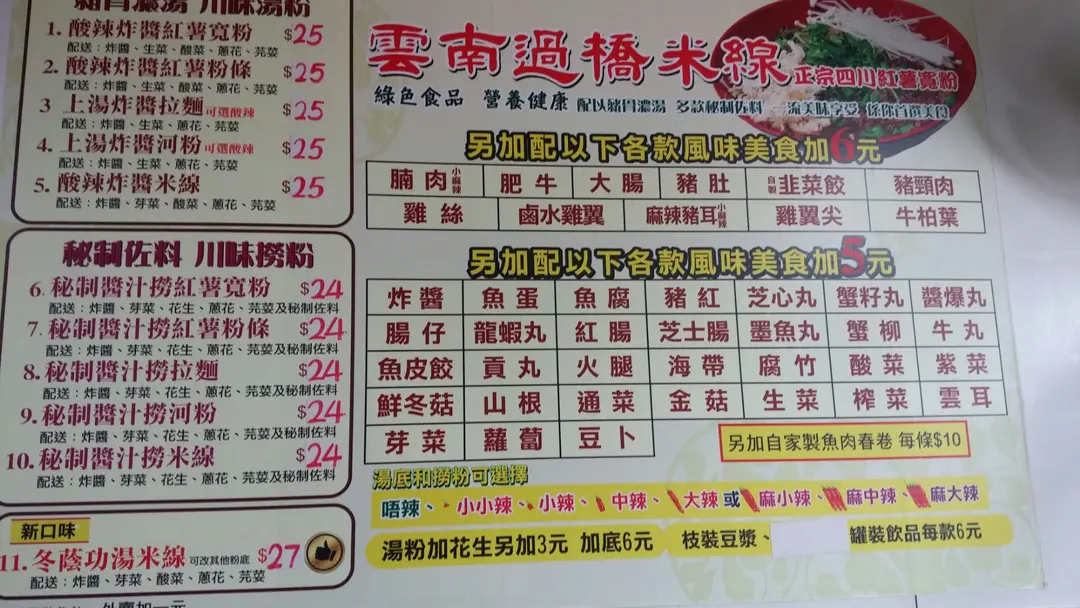 豬骨濃湯 川味湯粉
1. 酸辣炸醬紅薯寬粉 $25
配送：炸醬、生菜、酸菜、蔥花、芫荽
2. 酸辣炸醬紅薯粉條 $25
配送：炸醬、生菜、酸菜、蔥花、芫荽
3 上湯炸醬拉麵 可選酸辣 $25
配送：炸醬、生菜、蔥花、芫荽
4. 上湯炸醬河粉 可選酸辣 $25
配送：炸醬、生菜、蔥花、芫荽
5. 酸辣炸醬米線 $25
配送：炸醬、芽菜、酸菜、蔥花、芫荽
秘制佐料 川味撈粉
6. 秘制醬汁撈紅薯寬粉 $24
配送：炸醬、芽菜、花生、蔥花、芫荽及秘制佐料
7. 秘制醬汁撈紅薯粉條 $24
配送：炸醬、芽菜、花生、蔥花、芫荽及秘制佐料
8. 秘制醬汁撈拉麵 $24
配送：炸醬、芽菜、花生、蔥花、芫荽及秘制佐料
9. 秘制醬汁撈河粉 $24
配送：炸醬、芽菜、花生、蔥花、芫荽及秘制佐料
10. 秘制醬汁撈米線 $24
配送：炸醬、芽菜、花生、蔥花、芫荽及秘制佐料
新口味
11. 冬蔭功湯米線 可改其他粉底 $27
配送：炸醬、芽菜、酸菜、蔥花、芫荽
外賣加一元
雲南過橋米線 正宗四川紅薯寬粉
綠色食品 營養健康 配以豬骨濃湯 多款秘制佐料 一流美味享受 係你首選美食
另加配以下各款風味美食加6元
腩肉 小麻辣 肥牛 大腸 豬肚 自製韭菜餃 豬頸肉
雞絲 鹵水雞翼 麻辣豬耳 小麻辣 雞翼尖 牛柏葉
另加配以下各款風味美食加5元
炸醬 魚蛋 魚腐 豬紅 芝心丸 蟹籽丸 醬爆丸
腸仔 龍蝦丸 紅腸 芝士腸 墨魚丸 蟹柳 牛丸
魚皮餃 貢丸 火腿 海帶 腐竹 酸菜 紫菜
鮮冬菇 山根 通菜 金菇 生菜 榨菜 雲耳
芽菜 蘿蔔 豆卜
另加自家製魚肉春卷 每條$10
湯底和撈粉可選擇
唔辣、小小辣、小辣、中辣、大辣 或 麻小辣、麻中辣、麻大辣
湯粉加花生另加3元 加底6元
枝裝豆漿、 罐裝飲品每款6元